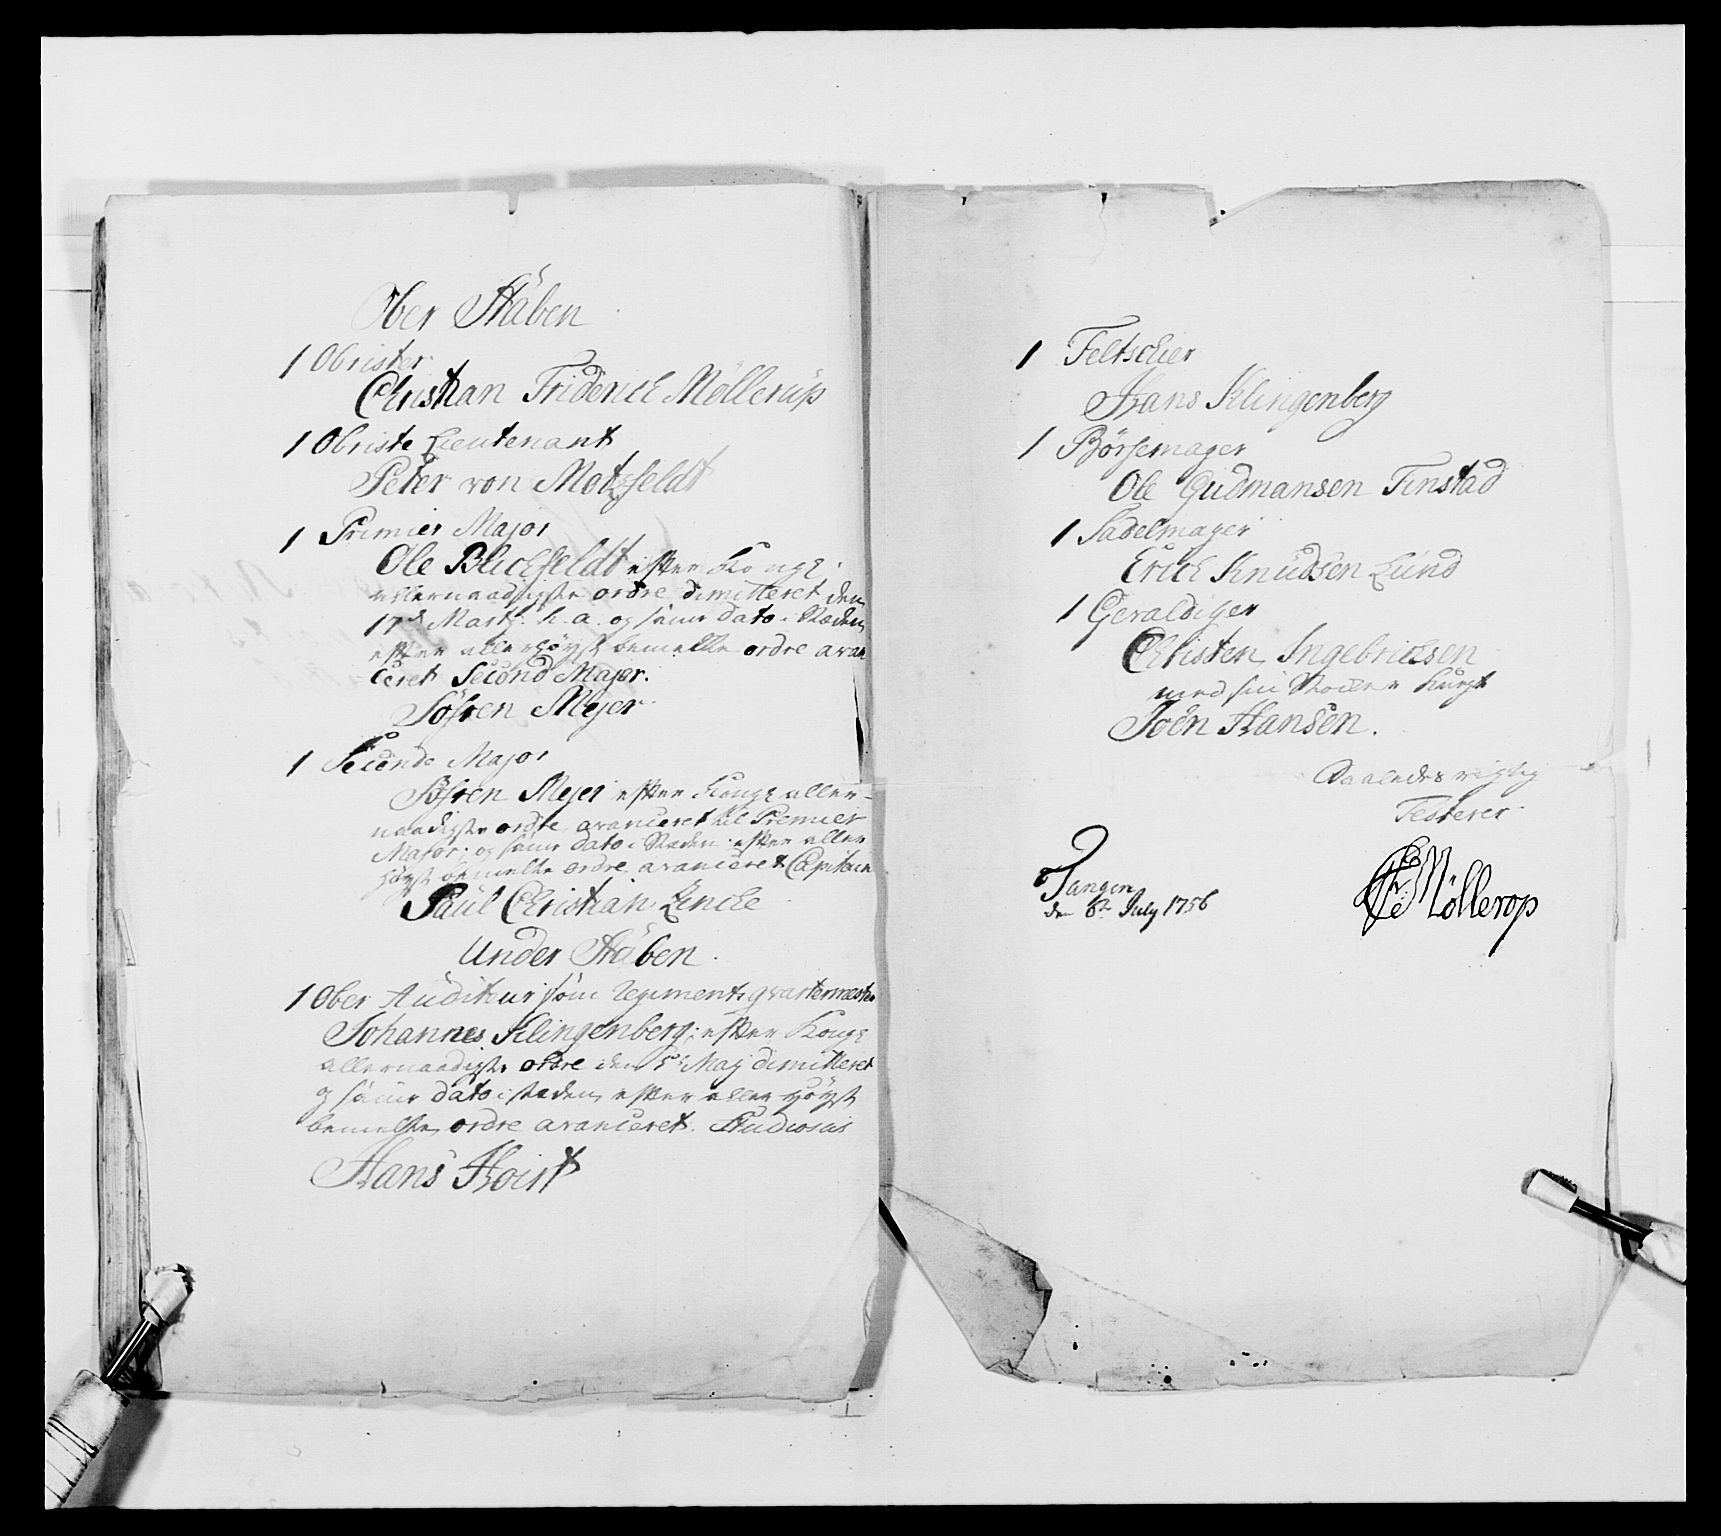 Ober Stäben
1 Obrister
Christian Friderich Möllerup
1 Obriste Lieutenant
Peter von Motzfeldt
1 Premier Major
Ole Blichfeldt efter Kongl:
allernaadigste ordre dimitteret den
17d Marty h. a. og samme dato i Stæden
efter allerhöyst bemelte ordre avan
ceret Second Major.
Söfren Mejer
1 Seconde Major
Söfren Mejer efter Kongl aller-
naadigste ordre avanceret til Premier
Major, og samme dato i Stæden efter aller
höyst bemelte ordre avanceret Capitain
Paul Christian Lencke
Under Stäben.
1 Ober Auditeur som Regimentsqvartermester
Johannes Klingenberg, efter Kongl
allernaadigste ordre den 5te Maj dimitteret
og samme dato i stæden efter aller höyst
bemelte ordre avanceret Studiosus
Hans Hoist
1 Feltschier
Hans Klingenberg
1 Börsemager
Ole Gudmansen Finstad
1 Sadelmager
Erich Knudsen Lund
1 Geraldiger
Christen Ingebricksen
med sin Stocke Knegt
Joen Hansen.
Saaledes rigtig
Testerer
Tangen
den 6te July 1756
CF Möllerop